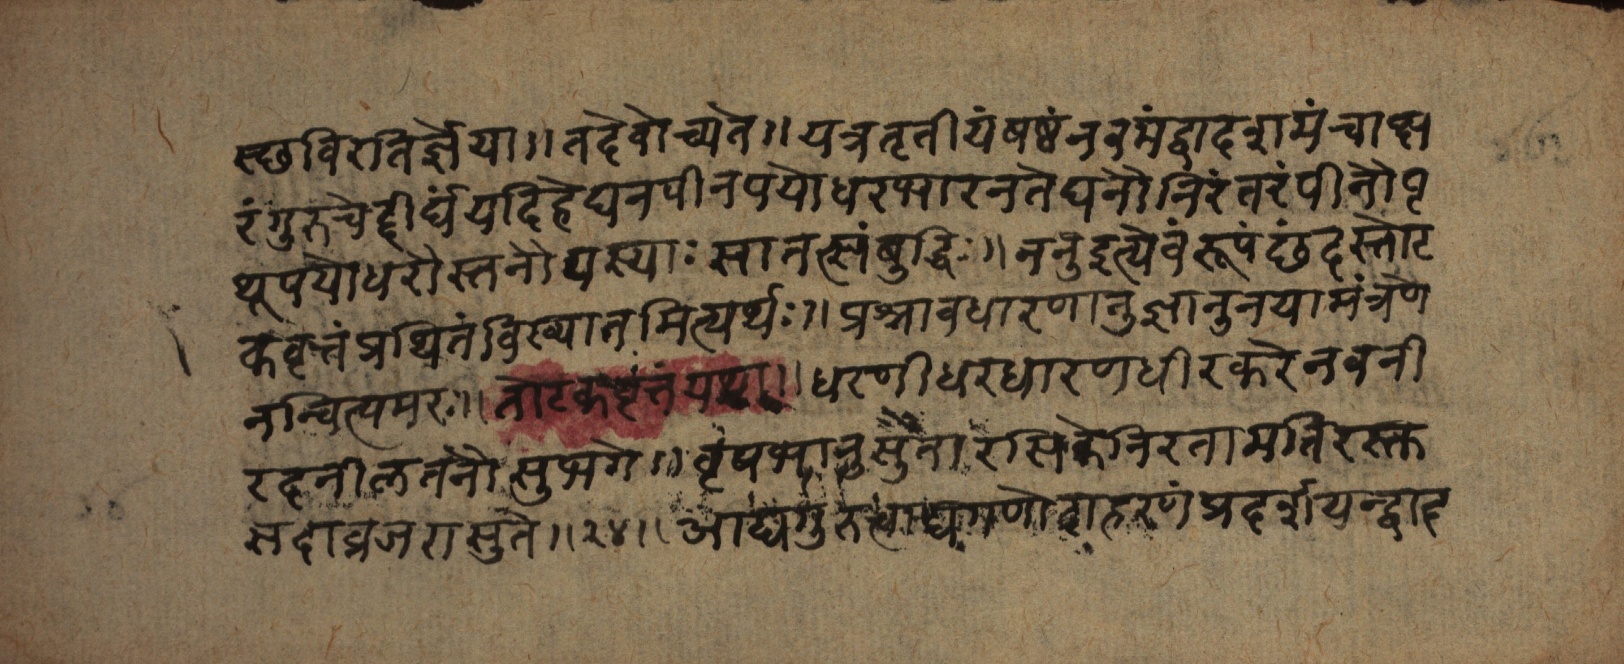 स्छविरतिर्ज्ञेया॥ तदेवोच्यते॥ यत्र तृतीयं षष्ठं नवमं द्वादशमं चाक्ष
रं गुरु चेद्दीर्घं यदि हे घनपीनपयोधरभारनते घनौ निरंतरं पीनौ पृ
थूपयोधरौ स्तनौ यस्याः सा तत्संबुद्धिः॥ ननु इत्येवं रूपं छंदस्तोट
कवृत्तं प्रथितं विख्यातमित्यर्थः॥ प्रश्नावधारणानुज्ञानुनयामंत्रणे
नन्वित्यमरः॥ तोटकवृत्तं यथा॥ धरणीधरधारणधीरकरे नवनी
रदनीलतनौ सुभगे॥ वृषभानुसुतारसिके निरता मतिरस्तु
सदा व्रजराजसुते॥ २४॥ आद्यगुरु द्योदाहरणं प्रदर्शयन्नाह